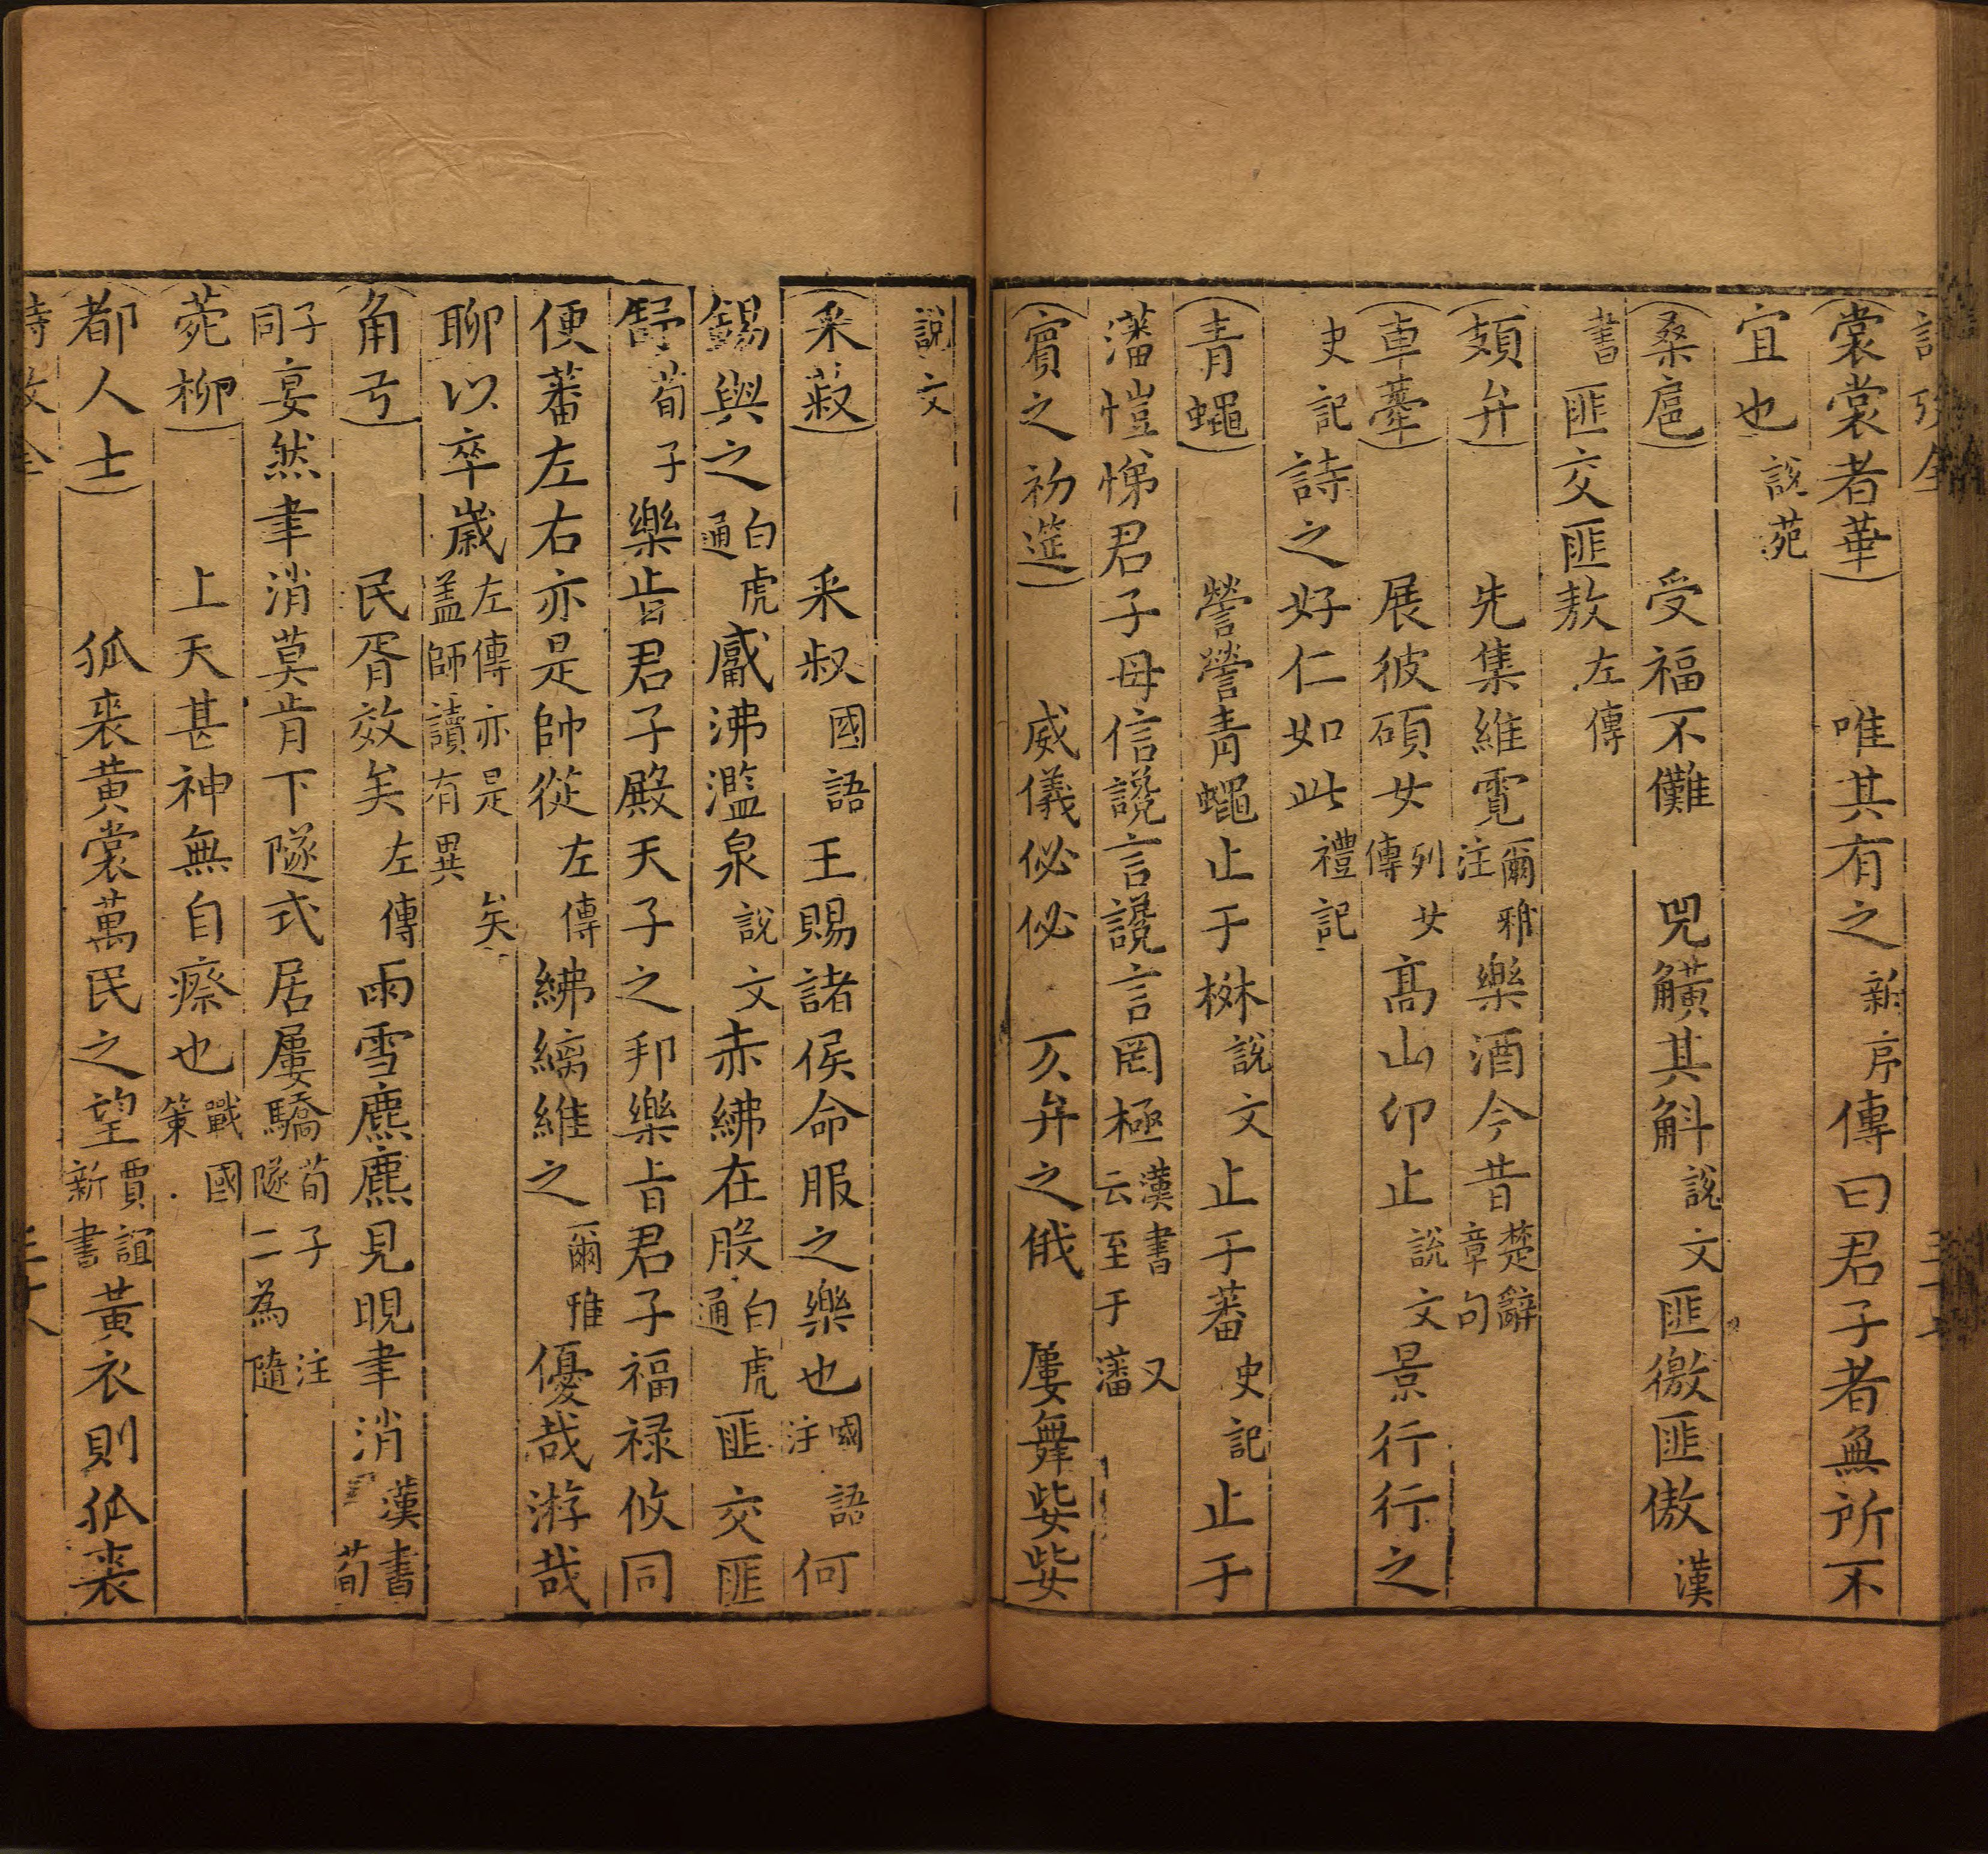 裳裳者華 唯其有之新序傳曰君子者無所不
宜也說苑
桑扈 受福不儺 兕觵其斛說文匪徼匪傲漢
書匪交匪敖左傳
頍弁 先集維霓爾雅注樂酒今昔楚辭章句
車舝 展彼碩女列女傳高山卬止說文景行行之
史記詩之好仁如此禮記
青蠅 營營青蠅止于楙說文止于蕃史記止于
藩愷悌君子毋信讒言讒言罔極漢書云至于藩又
賓之初筵 威儀佖佖 仄弁之俄 屢舞姕姕
說文
采菽 采叔國語王賜諸侯命服之樂也國語注何
錫與之白虎通觱沸濫泉說文赤紼在股白虎通匪交匪
舒荀子樂旨君子殿天子之邦樂旨君子福禄攸同
便蕃左右亦是帥從左傳紼縭維之爾雅優哉游哉
聊以卒歲左傳亦是矣蓋師讀有異
角弓 民胥效矣左傳雨雪麃麃見晛聿消漢書荀
子同宴然聿消莫肯下隧式居屢驕荀子注隧二為隨
菀柳 上天甚神無自瘵也戰國策
都人士 狐裘黄裳萬民之望賈誼新書黃衣則狐裘